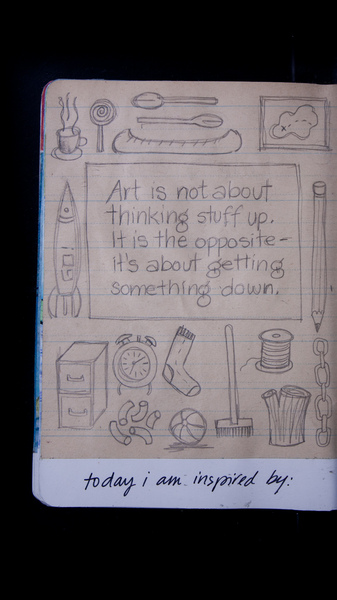 Art is not about
thinking stuff up.
It is the opposite-
it's about getting
something down.
today i am inspired by: